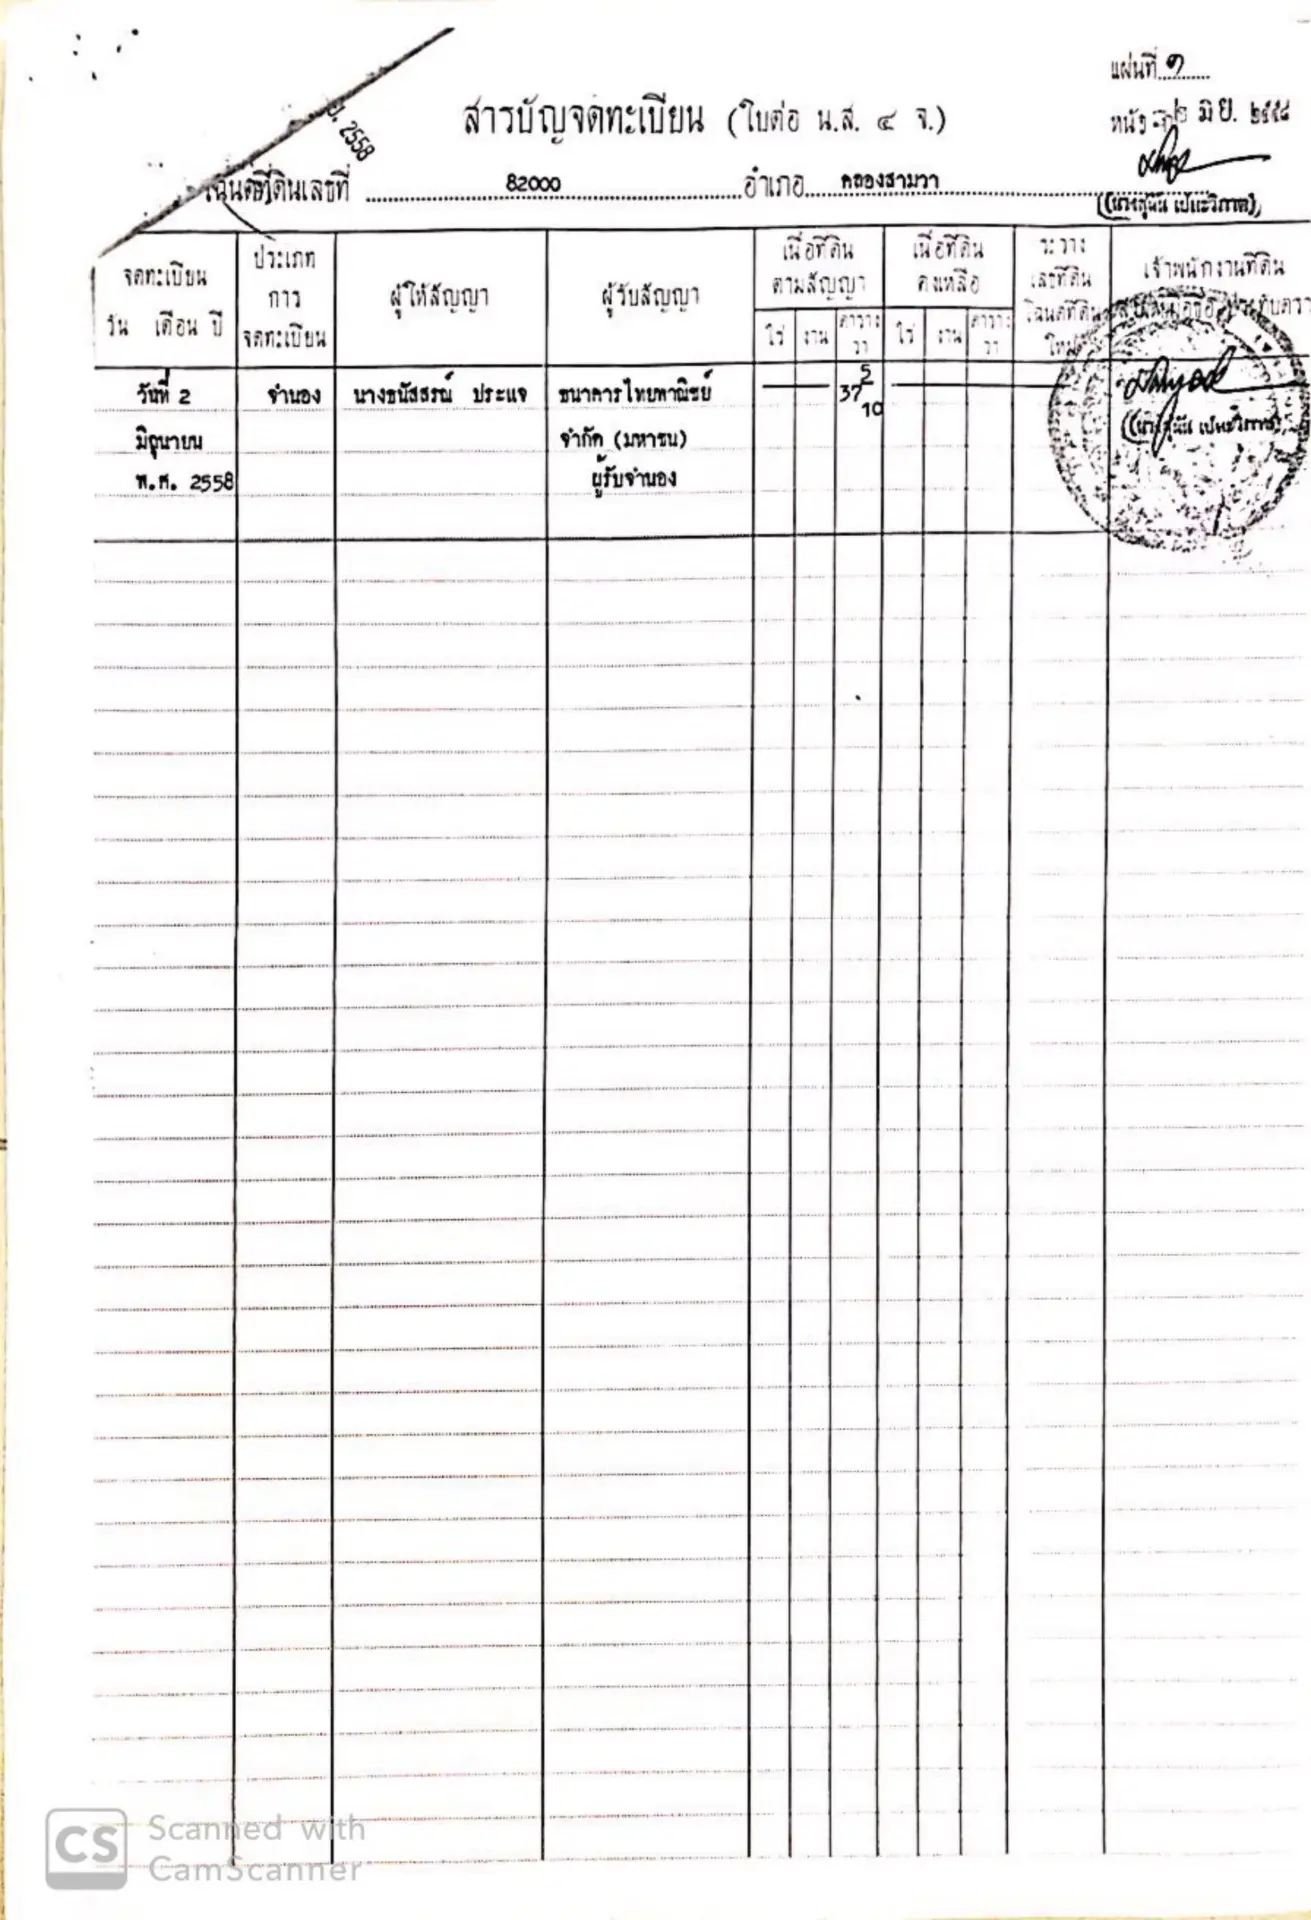 แผ่นที่ ๑
สารบัญจดทะเบียน (ใบต่อ น.ส. ๔ จ.)
๒ มิ.ย. ๒๕๕๘
2558
โฉนดที่ดินเลขที่ 82000 อำเภอ คลองสามวา
จดทะเบียน วัน เดือน ปี
ประเภทการจดทะเบียน
ผู้ให้สัญญา
ผู้รับสัญญา
เนื้อที่ดินตามสัญญา
ไร่ งาน ตารางวา
เนื้อที่ดินคงเหลือ
ไร่ งาน ตารางวา
ระวาง เลขที่ดิน โฉนดที่ดินใหม่
เจ้าพนักงานที่ดิน
วันที่ 2 จำนอง นางธนัสสรณ์ ประแจ ธนาคารไทยพาณิชย์ 37 5/10
มิถุนายน จำกัด (มหาชน)
พ.ศ. 2558 ผู้รับจำนอง
CS Scanned with
CamScanner